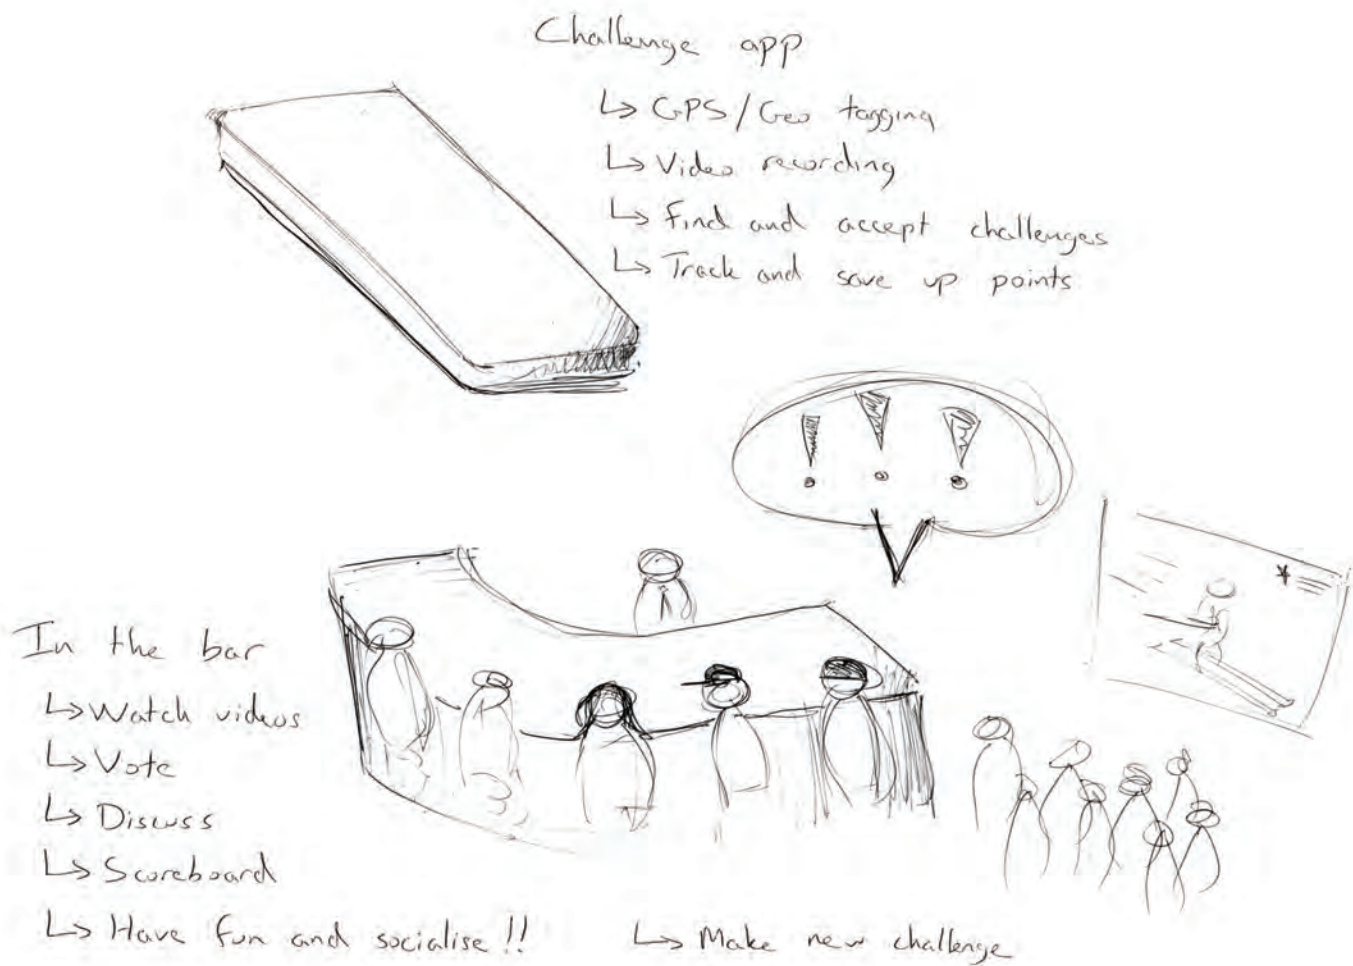 Challenge app
↳ GPS/Geo tagging
↳ Video recording
↳ Find and accept challenges
↳ Track and save up points
! ! !
In the bar
↳ Watch videos
↳ Vote
↳ Discuss
↳ Scoreboard
↳ Have fun and socialise!!
↳ Make new challenge